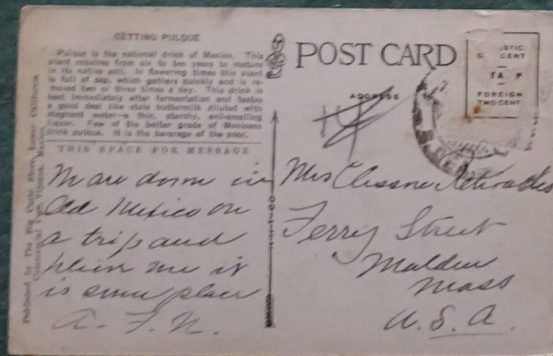 GETTING PULQUE
Pulque is the national drink of Mexico. This
plant requires from six to ten years to mature
in its native soil. In flowering times this plant
is full of sap, which gathers quickly and is re-
moved two or three times a day. This drink is
best immediately after fermentation and tastes
a good deal like stale buttermilk diluted with
stagnant water—a thin, starchy, evil-smelling
liquor. Few of the better grade of Mexicans
drink pulque. It is the beverage of the poor.
THIS SPACE FOR MESSAGE
We are down in
Old Mexico on
a trip and
me it
is some place
A. F. N.
Published by The Big Curio Store, Lower California
Commercial Co., Tijuana, Mexico
POST CARD
ADDRESS
FOREIGN
TWO CENT
Mrs
Ferry Street
Malden
Mass
U.S.A.